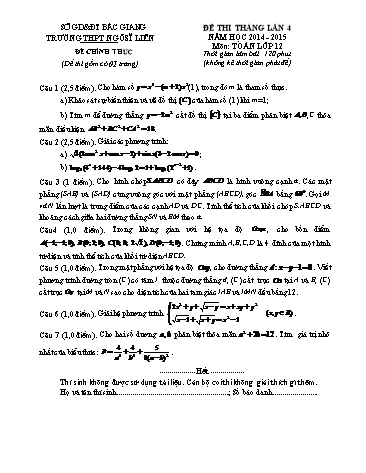 SỞ GD&ĐT BẮC GIANG
TRƯỜNG THPT NGÔ SĨ LIÊN
ĐỀ CHÍNH THỨC
(Đề thi gồm có 01 trang)
ĐỀ THI THÁNG LẦN 4
NĂM HỌC 2014 - 2015
Môn: TOÁN LỚP 12
Thời gian làm bài: 120 phút
(không kể thời gian phát đề)
Câu 1 (2,5 điểm). Cho hàm số (1), trong đó m là tham số thực.
a) Khảo sát sự biến thiên và vẽ đồ thị (C) của hàm số (1) khi m=1;
b) Tìm m để đường thẳng cắt đồ thị (C) tại ba điểm phân biệt A, B, C thỏa
mãn điều kiện AB² + BC² + CA² = 18.
Câu 2 (2,5 điểm). Giải các phương trình:
a)
b)
Câu 3 (1 điểm). Cho hình chóp S.ABCD có đáy ABCD là hình vuông cạnh a. Các mặt
phẳng (SAB) và (SAD) cùng vuông góc với mặt phẳng (ABCD), góc bằng 60°. Gọi M
và N lần lượt là trung điểm của các cạnh AD và DC. Tính thể tích của khối chóp S.ABCD và
khoảng cách giữa hai đường thẳng SN và BM theo a.
Câu 4 (1,0 điểm). Trong không gian với hệ tọa độ Oxyz, cho bốn điểm
Chứng minh A, B, C, D là 4 đỉnh của một hình
tứ diện và tính thể tích của khối tứ diện ABCD.
Câu 5 (1,0 điểm). Trong mặt phẳng với hệ tọa độ Oxy, cho đường thẳng d: x - y - 1 = 0. Viết
phương trình đường tròn (C) có tâm I thuộc đường thẳng d, (C) cắt trục Ox tại A và B, (C)
cắt trục Oy tại M và N sao cho diện tích của hai tam giác IAB và IMN đều bằng 12.
Câu 6 (1,0 điểm). Giải hệ phương trình
Câu 7 (1,0 điểm). Cho hai số dương a, b phân biệt thỏa mãn a² + 2b = 12. Tìm giá trị nhỏ
nhất của biểu thức: P = 4/a⁴ + 4/b⁴ + 5/8(a-b)².
Hết
Thí sinh không được sử dụng tài liệu. Cán bộ coi thi không giải thích gì thêm.
Họ và tên thí sinh; Số báo danh